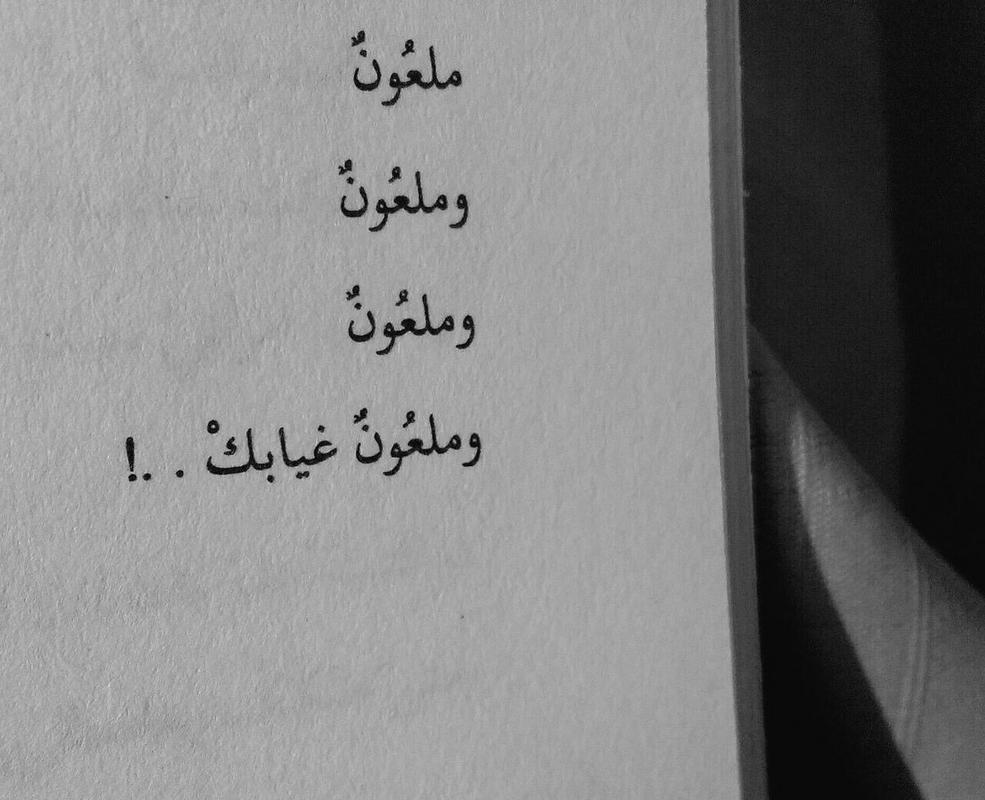 ملعُونٌ
وملعُونٌ
وملعُونٌ
وملعُونٌ غيابكْ . .!